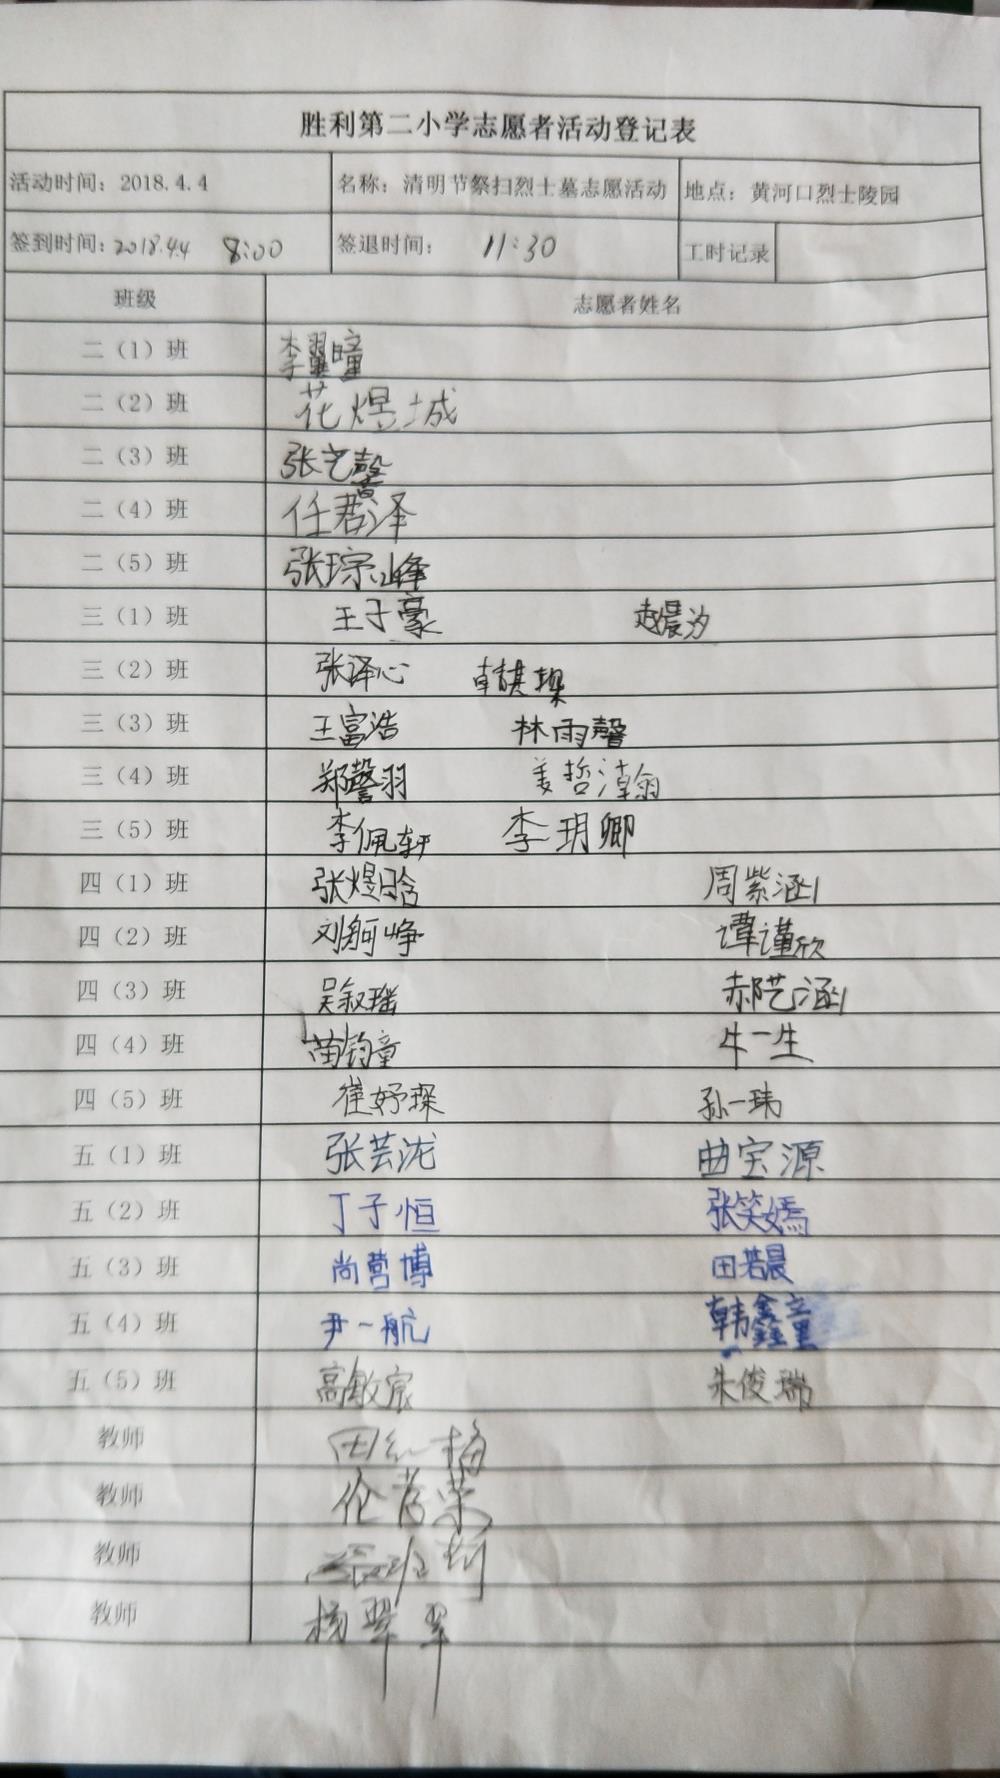 胜利第二小学志愿者活动登记表
活动时间：2018.4.4 名称：清明节祭扫烈士墓志愿活动 地点：黄河口烈士陵园
签到时间：2018.4.4 8:00 签退时间： 11:30 工时记录
班级 志愿者姓名
二（1）班 李翼瞳
二（2）班 花煜城
二（3）班 张艺馨
二（4）班 任君泽
二（5）班 张琮峰
三（1）班 王子豪 赵晨汐
三（2）班 张译心 韩祺
三（3）班 王富浩 林雨馨
三（4）班 郑馨羽 姜哲瀚
三（5）班 李佩轩 李玥卿
四（1）班 张煜晗 周紫涵
四（2）班 刘舸峥 谭谨欣
四（3）班 吴叙瑶 郝艺涵
四（4）班 苗钧童 牛一生
四（5）班 崔妤琛 孙一玮
五（1）班 张芸泷 曲宝源
五（2）班 丁子恒 张笑嫣
五（3）班 尚营博 田若晨
五（4）班 尹一航 韩鑫童
五（5）班 高敏宸 朱俊瑞
教师 田红梅
教师
教师
教师 杨翠翠